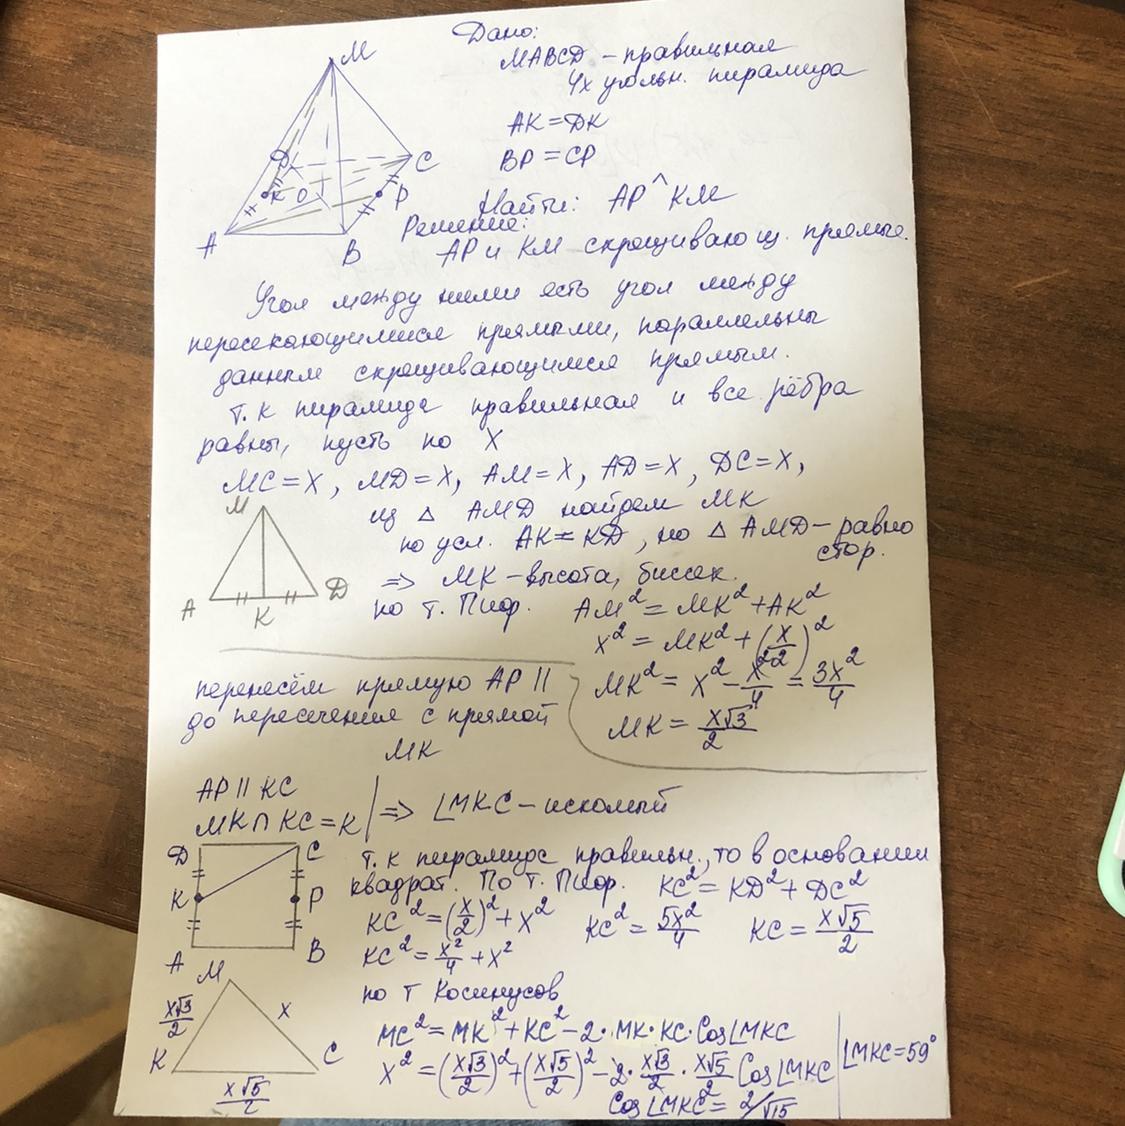 Дано:
MABCD - правильная
4х угольн. пирамида
AK = DK
BP = CP
Найти: AP ^ KM
Решение:
AP и KM скрещивающ. прямые.
M
D
C
K
O
P
A
B
Угол между ними есть угол между
пересекающимися прямыми, параллельны
данным скрещивающимся прямым.
т.к пирамида правильная и все рёбра
равны, пусть по X
MC = X, MD = X, AM = X, AD = X, DC = X,
из △ AMD найдем MK
по усл. AK = KD, но △ AMD - равно
стор.
=> MK - высота, биссек.
по т. Пиф. AM² = MK² + AK²
x² = MK² + (x/2)²
MK² = x² - x²/4 = 3x²/4
MK = x√3/2
M
A
K
D
перенесём прямую AP ||
до пересечения с прямой
MK
AP || KC
MK ∩ KC = K | => ∠MKC - искомый
D
C
K
P
A
B
т.к пирамида правильн., то в основании
квадрат. По т. Пиф. KC² = KD² + DC²
KC² = (x/2)² + x² KC² = 5x²/4 KC = x√5/2
KC² = x²/4 + x²
M
x√3/2
x
K
C
x√5/2
по т Косинусов
MC² = MK² + KC² - 2·MK·KC·Cos∠MKC
x² = (x√3/2)² + (x√5/2)² - 2·x√3/2·x√5/2 Cos∠MKC
Cos∠MKC = 2/√15
∠MKC = 59°